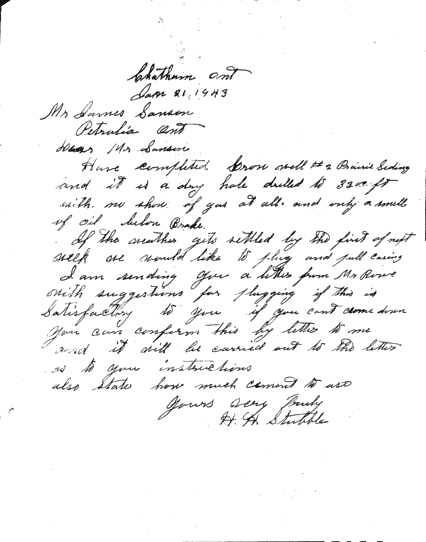 Chatham Ont
Jan 21, 1943
Mr James Sanson
Petrolia Ont
Dear Mr Sanson
Have completed Crow well #2 Prairie Siding
and it is a dry hole drilled to 3300 ft
with no show of gas at all and only a smell
of oil below Brake.
If the weather gets settled by the first of next
week we would like to plug and pull casing
I am sending you a letter from Mr Rowe
with suggestions for plugging if this is
Satisfactory to you if you cant come down
you can confirm this by letter to me
and it will be carried out to the letter
as to your instructions
also state how much cement to use
Yours very truly
H. H. Stubble